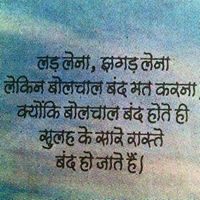 लड़ लेना, झगड़ लेना
लेकिन बोलचाल बंद मत करना,
क्योंकि बोलचाल बंद होते ही
सुलह के सारे रास्ते
बंद हो जाते हैं।